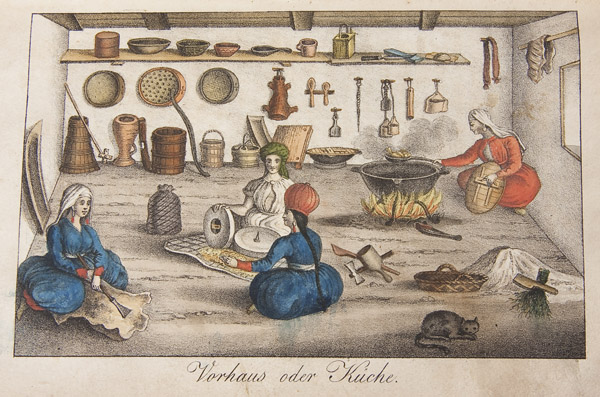 Vorhaus oder Küche.